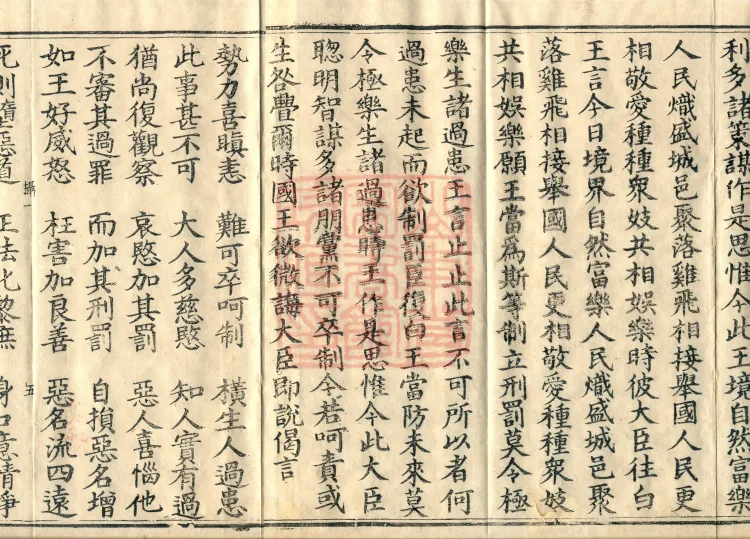 利多諸策謀作是思惟今此王境自然富樂
人民熾盛城邑聚落雞飛相接舉國人民更
相敬愛種種衆妓共相娛樂時彼大臣往白
王言今日境界自然富樂人民熾盛城邑聚
落雞飛相接舉國人民更相敬愛種種衆妓
共相娛樂願王當爲斯等制立刑罰莫令極
樂生諸過患王言止止此言不可所以者何
過患未起而欲制罰臣復白王當防未來莫
令極樂生諸過患時王作是思惟今此大臣
聰明智謀多諸朋黨不可卒制今若呵責或
生咎舋爾時國王欲微誨大臣即說偈言
勢力喜瞋恚 難可卒呵制 橫生人過患
此事甚不可 大人多慈愍 知人實有過
猶尚復觀察 哀愍加其罰 惡人喜惱他
不審其過罪 而加其刑罰 自損惡名增
如王好威怒 枉害加良善 惡名流四遠
死則墮惡道 正法化黎庶 身口意清淨
攝一
五